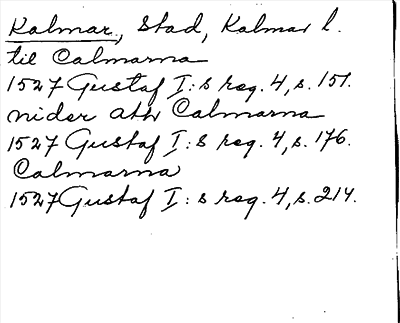 Kalmar, Stad, Kalmar l.
til Calmarna
1527 Gustaf I:s reg. 4, s. 151.
nider ath Calmarna
1527 Gustaf I:s reg. 4, s. 176.
Calmarna
1527 Gustaf I:s reg. 4, s. 214.